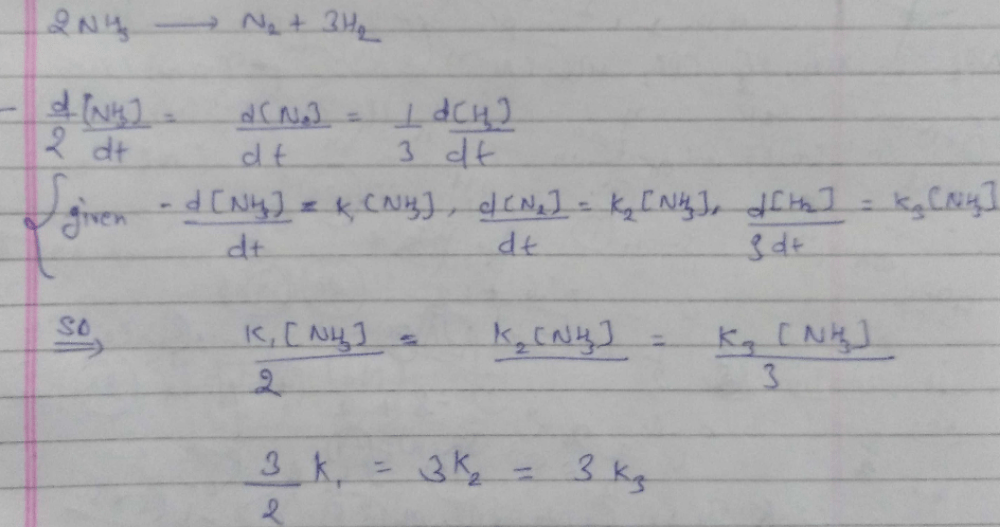 2NH₃ ⟶ N₂ + 3H₂
- d[NH₃]/2dt = d[N₂]/dt = 1/3 d[H₂]/dt
{given - d[NH₃]/dt = k₁[NH₃], d[N₂]/dt = K₂[NH₃], d[H₂]/3dt = K₃[NH₃]
so ⇒ K₁[NH₃]/2 = K₂[NH₃] = K₃[NH₃]/3
3/2 K₁ = 3K₂ = 3K₃